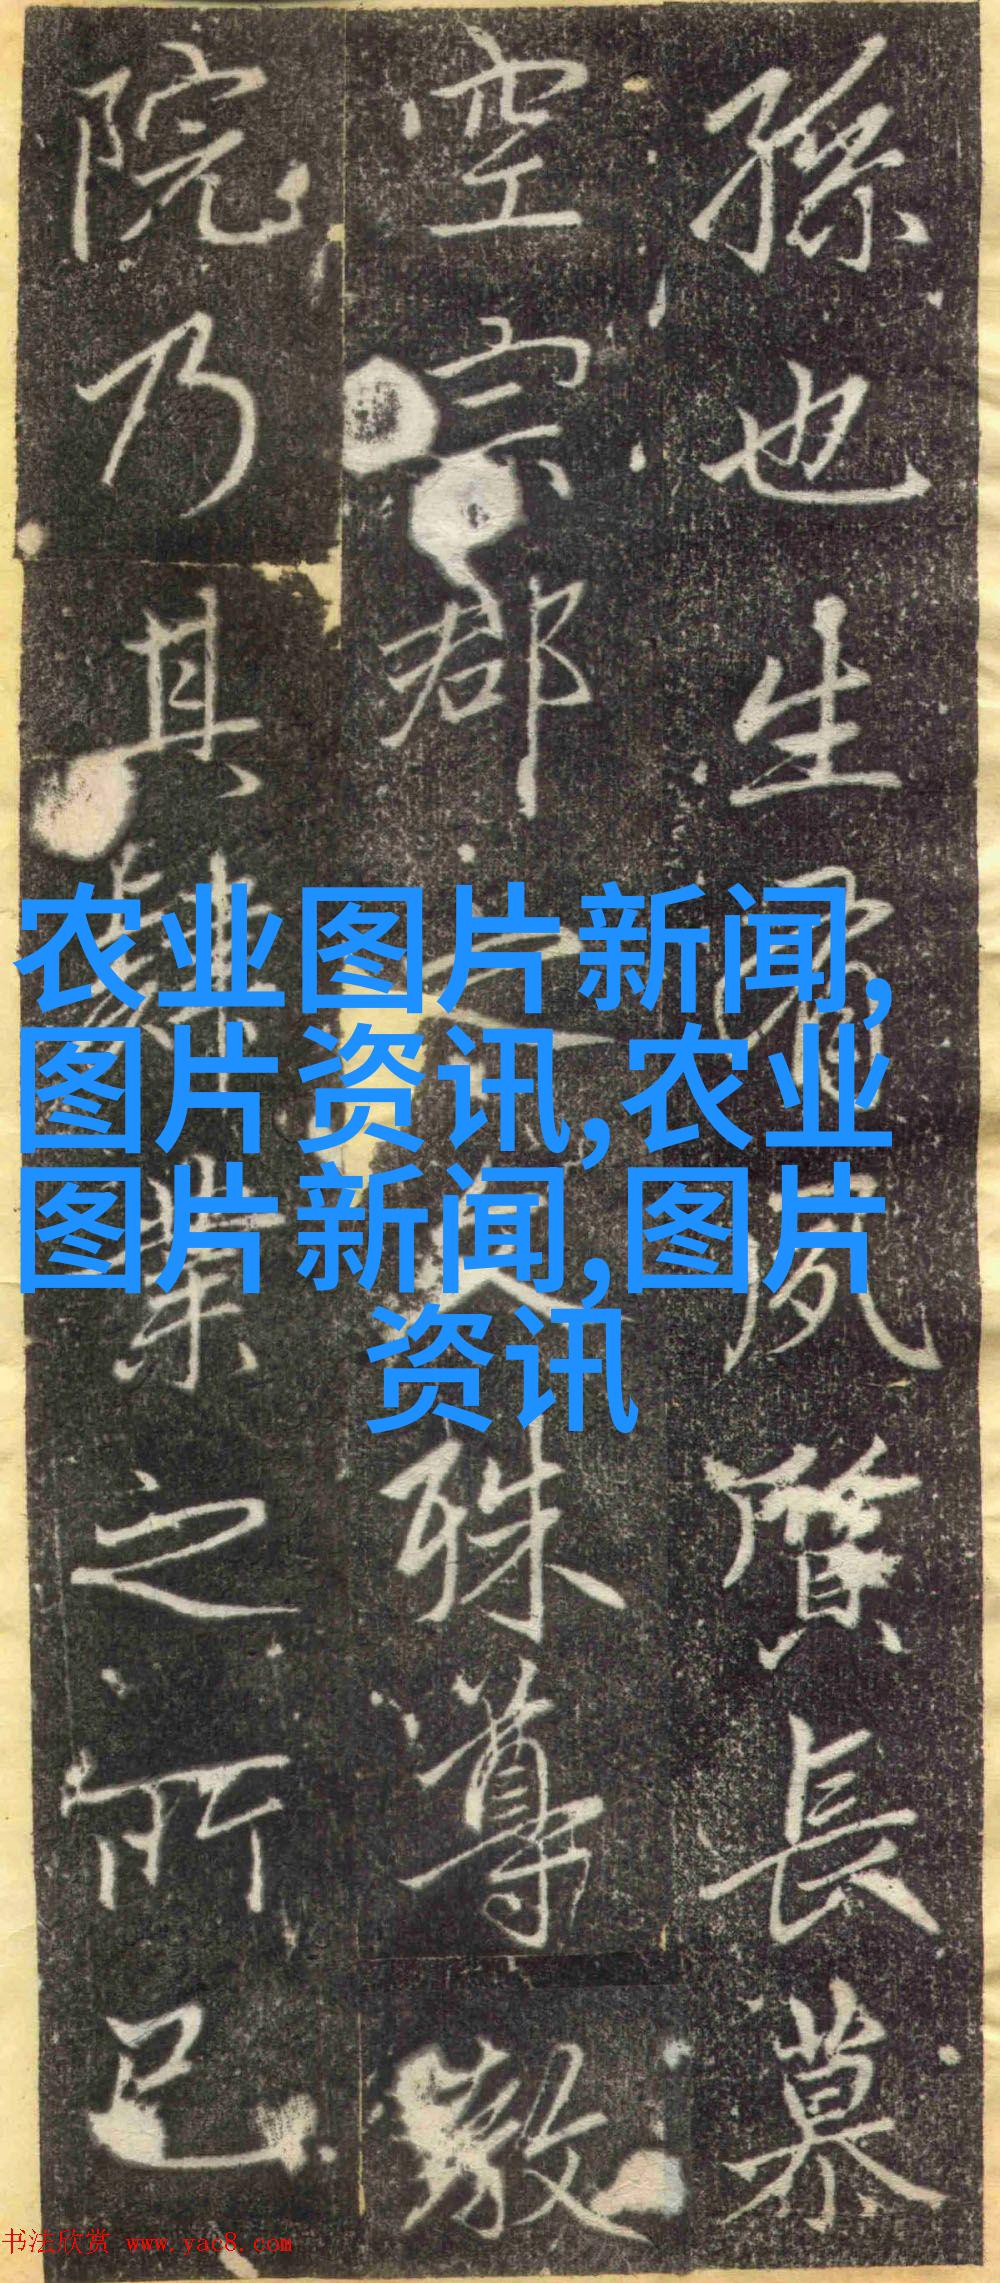 孫也生夙質長慕
空宗郡之人殊尊敬
院乃其肄業之所已
农业图片新闻,
图片资讯,农业
图片新闻,图片
资讯
书法欣赏 www.yac8.com